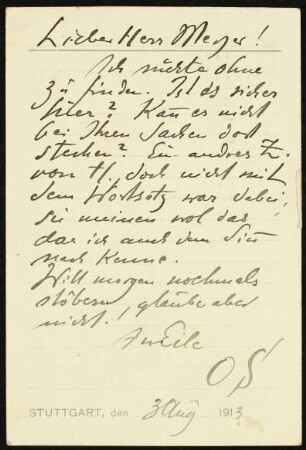 Lieber Herr Meyer!
Ich suchte ohne
zu finden. Ist es sicher
hier? Kann es nicht
bei Ihren Sachen dort
stecken? Ein andres
von H. doch nicht mit
dem Wortsatz war dabei,
Sie meinen wol das
das ich auch dem Sinn
nach kenne.
Will morgen nochmals
stöbern, glaube aber
nicht!
In Eile
OS
STUTTGART, den 3 Aug 1913